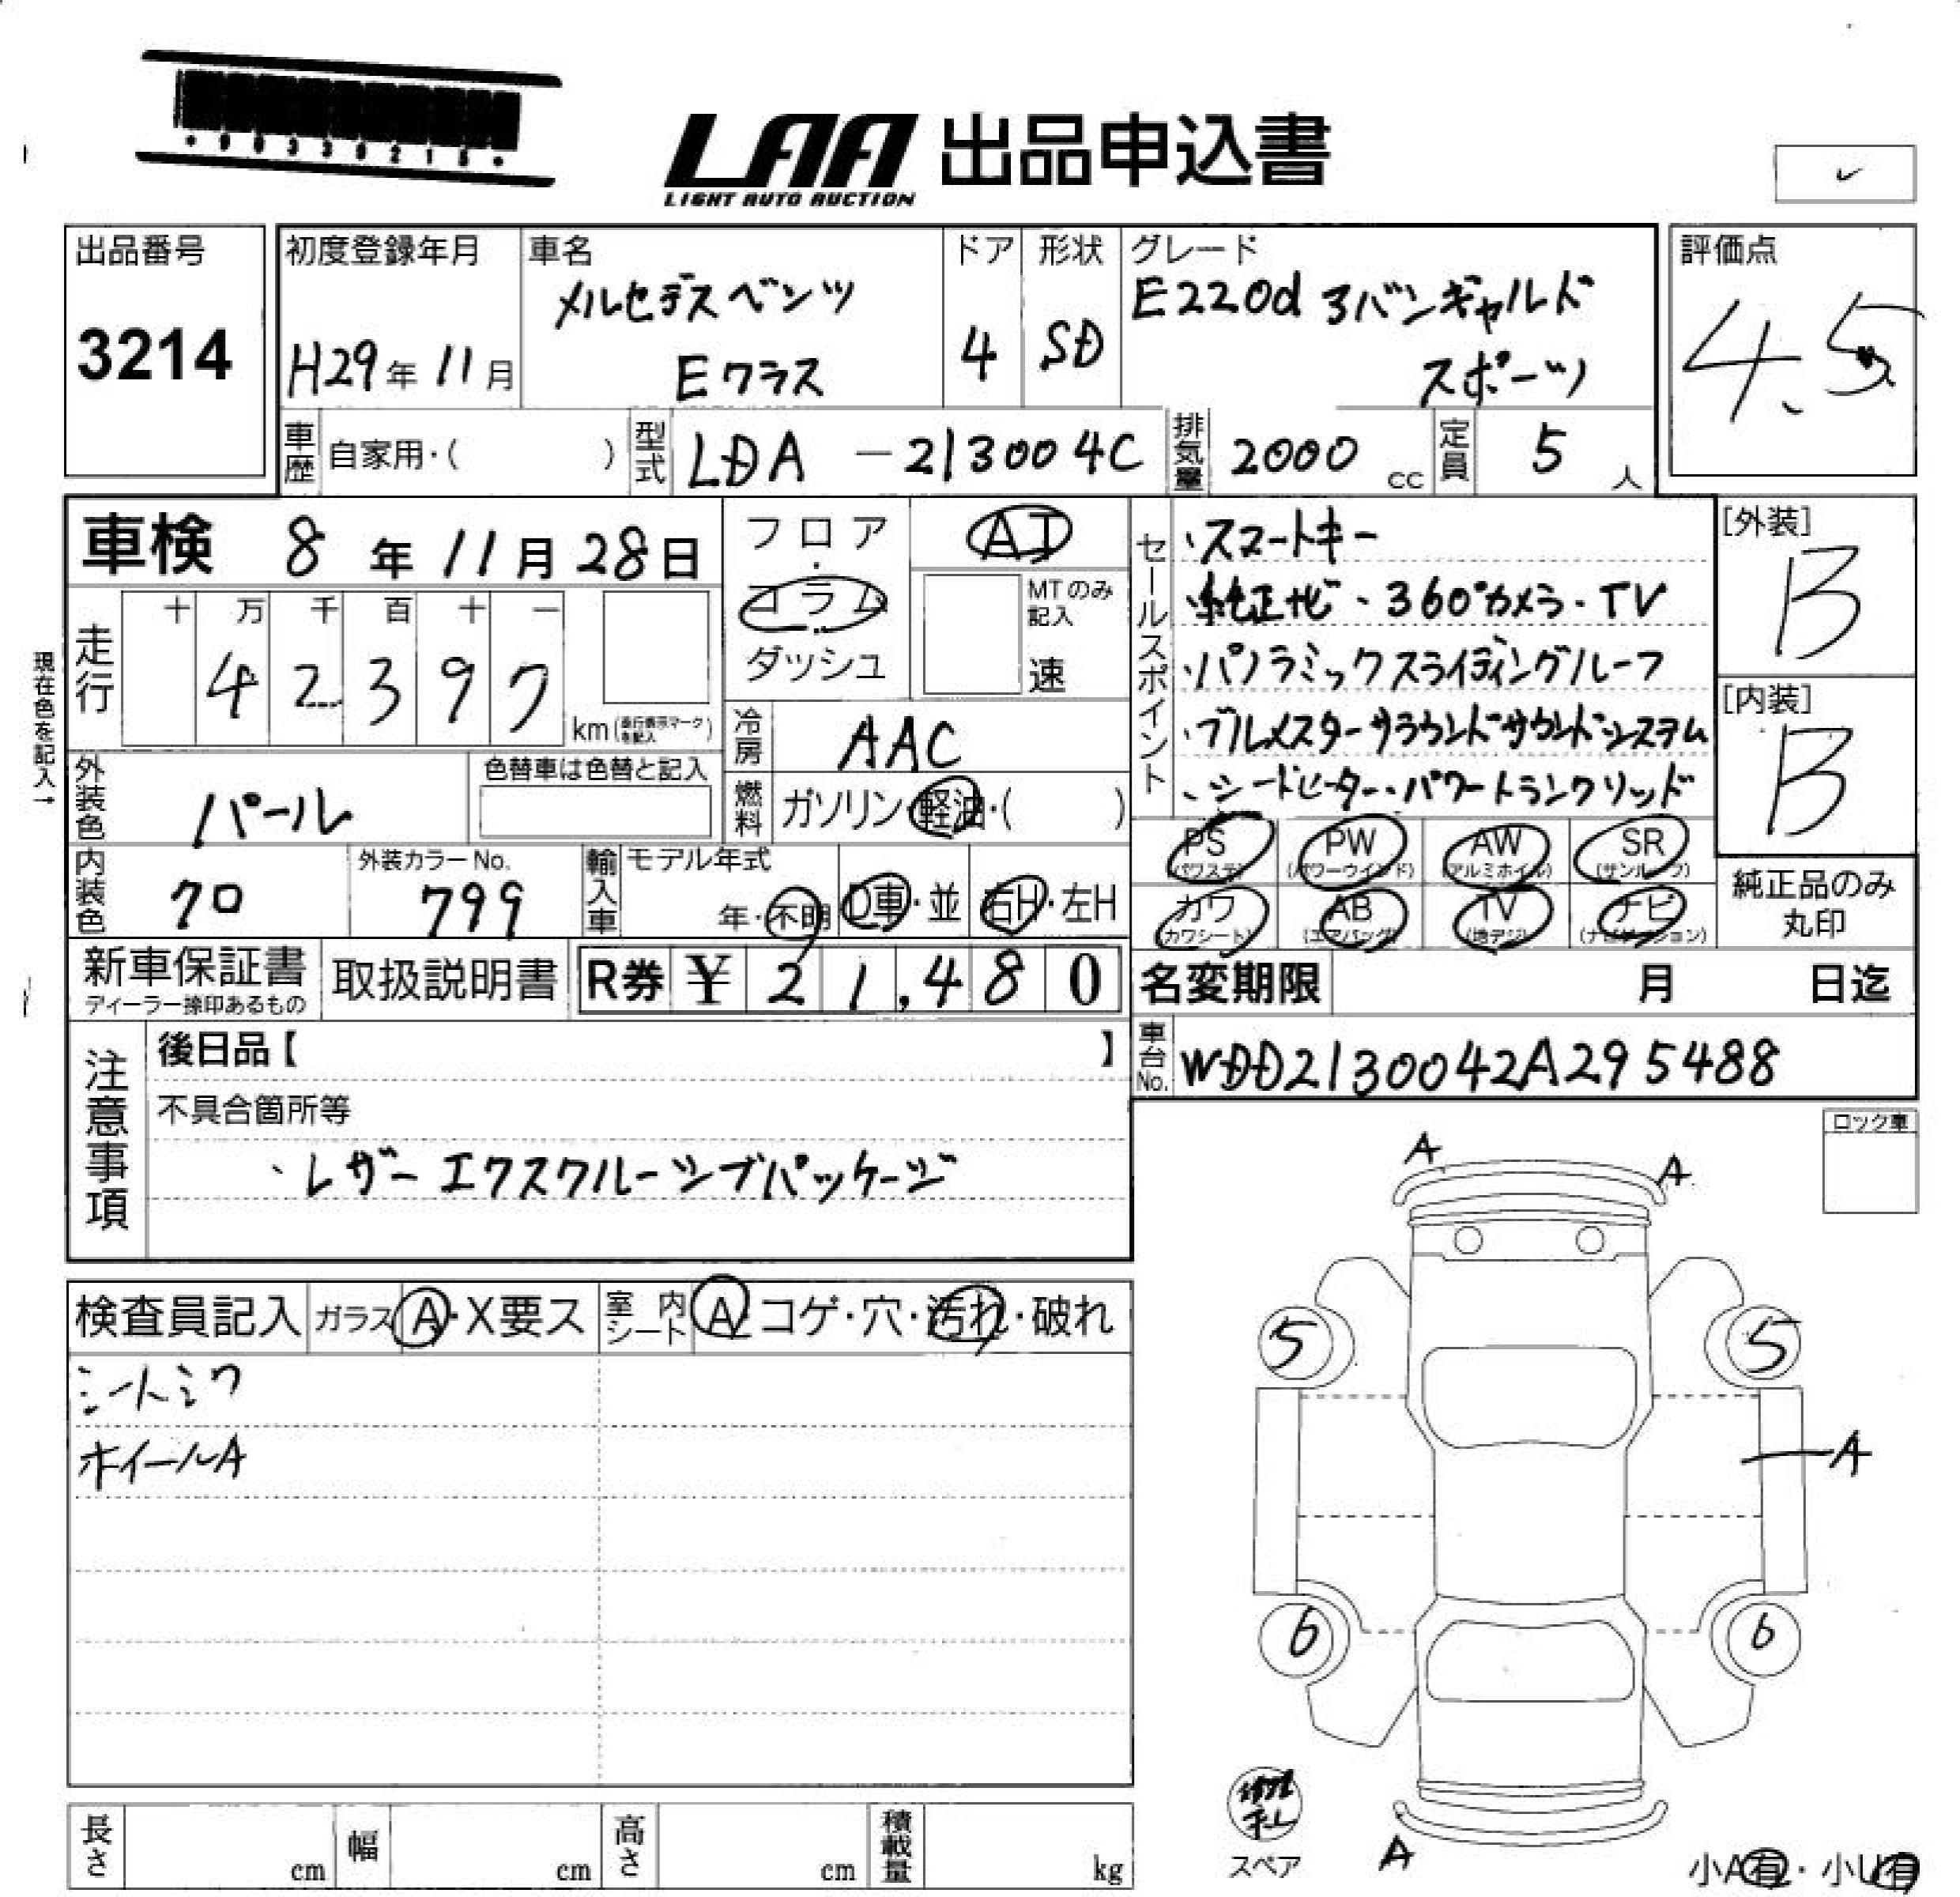 LAA 出品申込書
LIGHT AUTO AUCTION
出品番号
3214
初度登録年月
H29年 11月
車名
メルセデスベンツ
Eクラス
ドア
4
形状
SD
グレード
E220d アバンギャルド
スポーツ
評価点
4.5
車歴 自家用・( )
型式 LDA -213004C
排気量 2000 cc
定員 5 人
車検 8 年 11 月 28 日
走行
十 万 千 百 十 一
4 2 3 9 7
km(走行表示マークを記入)
現在色を記入→
フロア・
コラム
ダッシュ
AT
MTのみ
記入
速
冷房 AAC
燃料 ガソリン・軽油・( )
外装色 パール
色替車は色替と記入
内装色 クロ
外装カラーNo.
799
輸入車 モデル年式
年・不明 D車・並 右H・左H
セールスポイント
・スマートキー
・純正ナビ・360°カメラ・TV
・パノラミックスライディングルーフ
・ブルメスターサラウンドサウンドシステム
・シートヒーター・パワートランクリッド
[外装]
B
[内装]
B
PS (パワステ)
PW (パワーウインド)
AW (アルミホイル)
SR (サンルーフ)
カワ (カワシート)
AB (エアバッグ)
TV (地デジ)
ナビ (ナビゲーション)
純正品のみ
丸印
新車保証書
ディーラー捺印あるもの
取扱説明書
R券 ¥ 21,480
名変期限 月 日迄
車台No. WDD2130042A295488
注意事項
後日品【 】
不具合箇所等
・レザーエクスクルーシブパッケージ
ロック車
検査員記入 ガラス A・X要ス
室内シート A・コゲ・穴・汚れ・破れ
シートシワ
ホイールA
A
A
5
5
A
6
6
A
スペア
小A有・小U有
長さ cm
幅 cm
高さ cm
積載量 kg